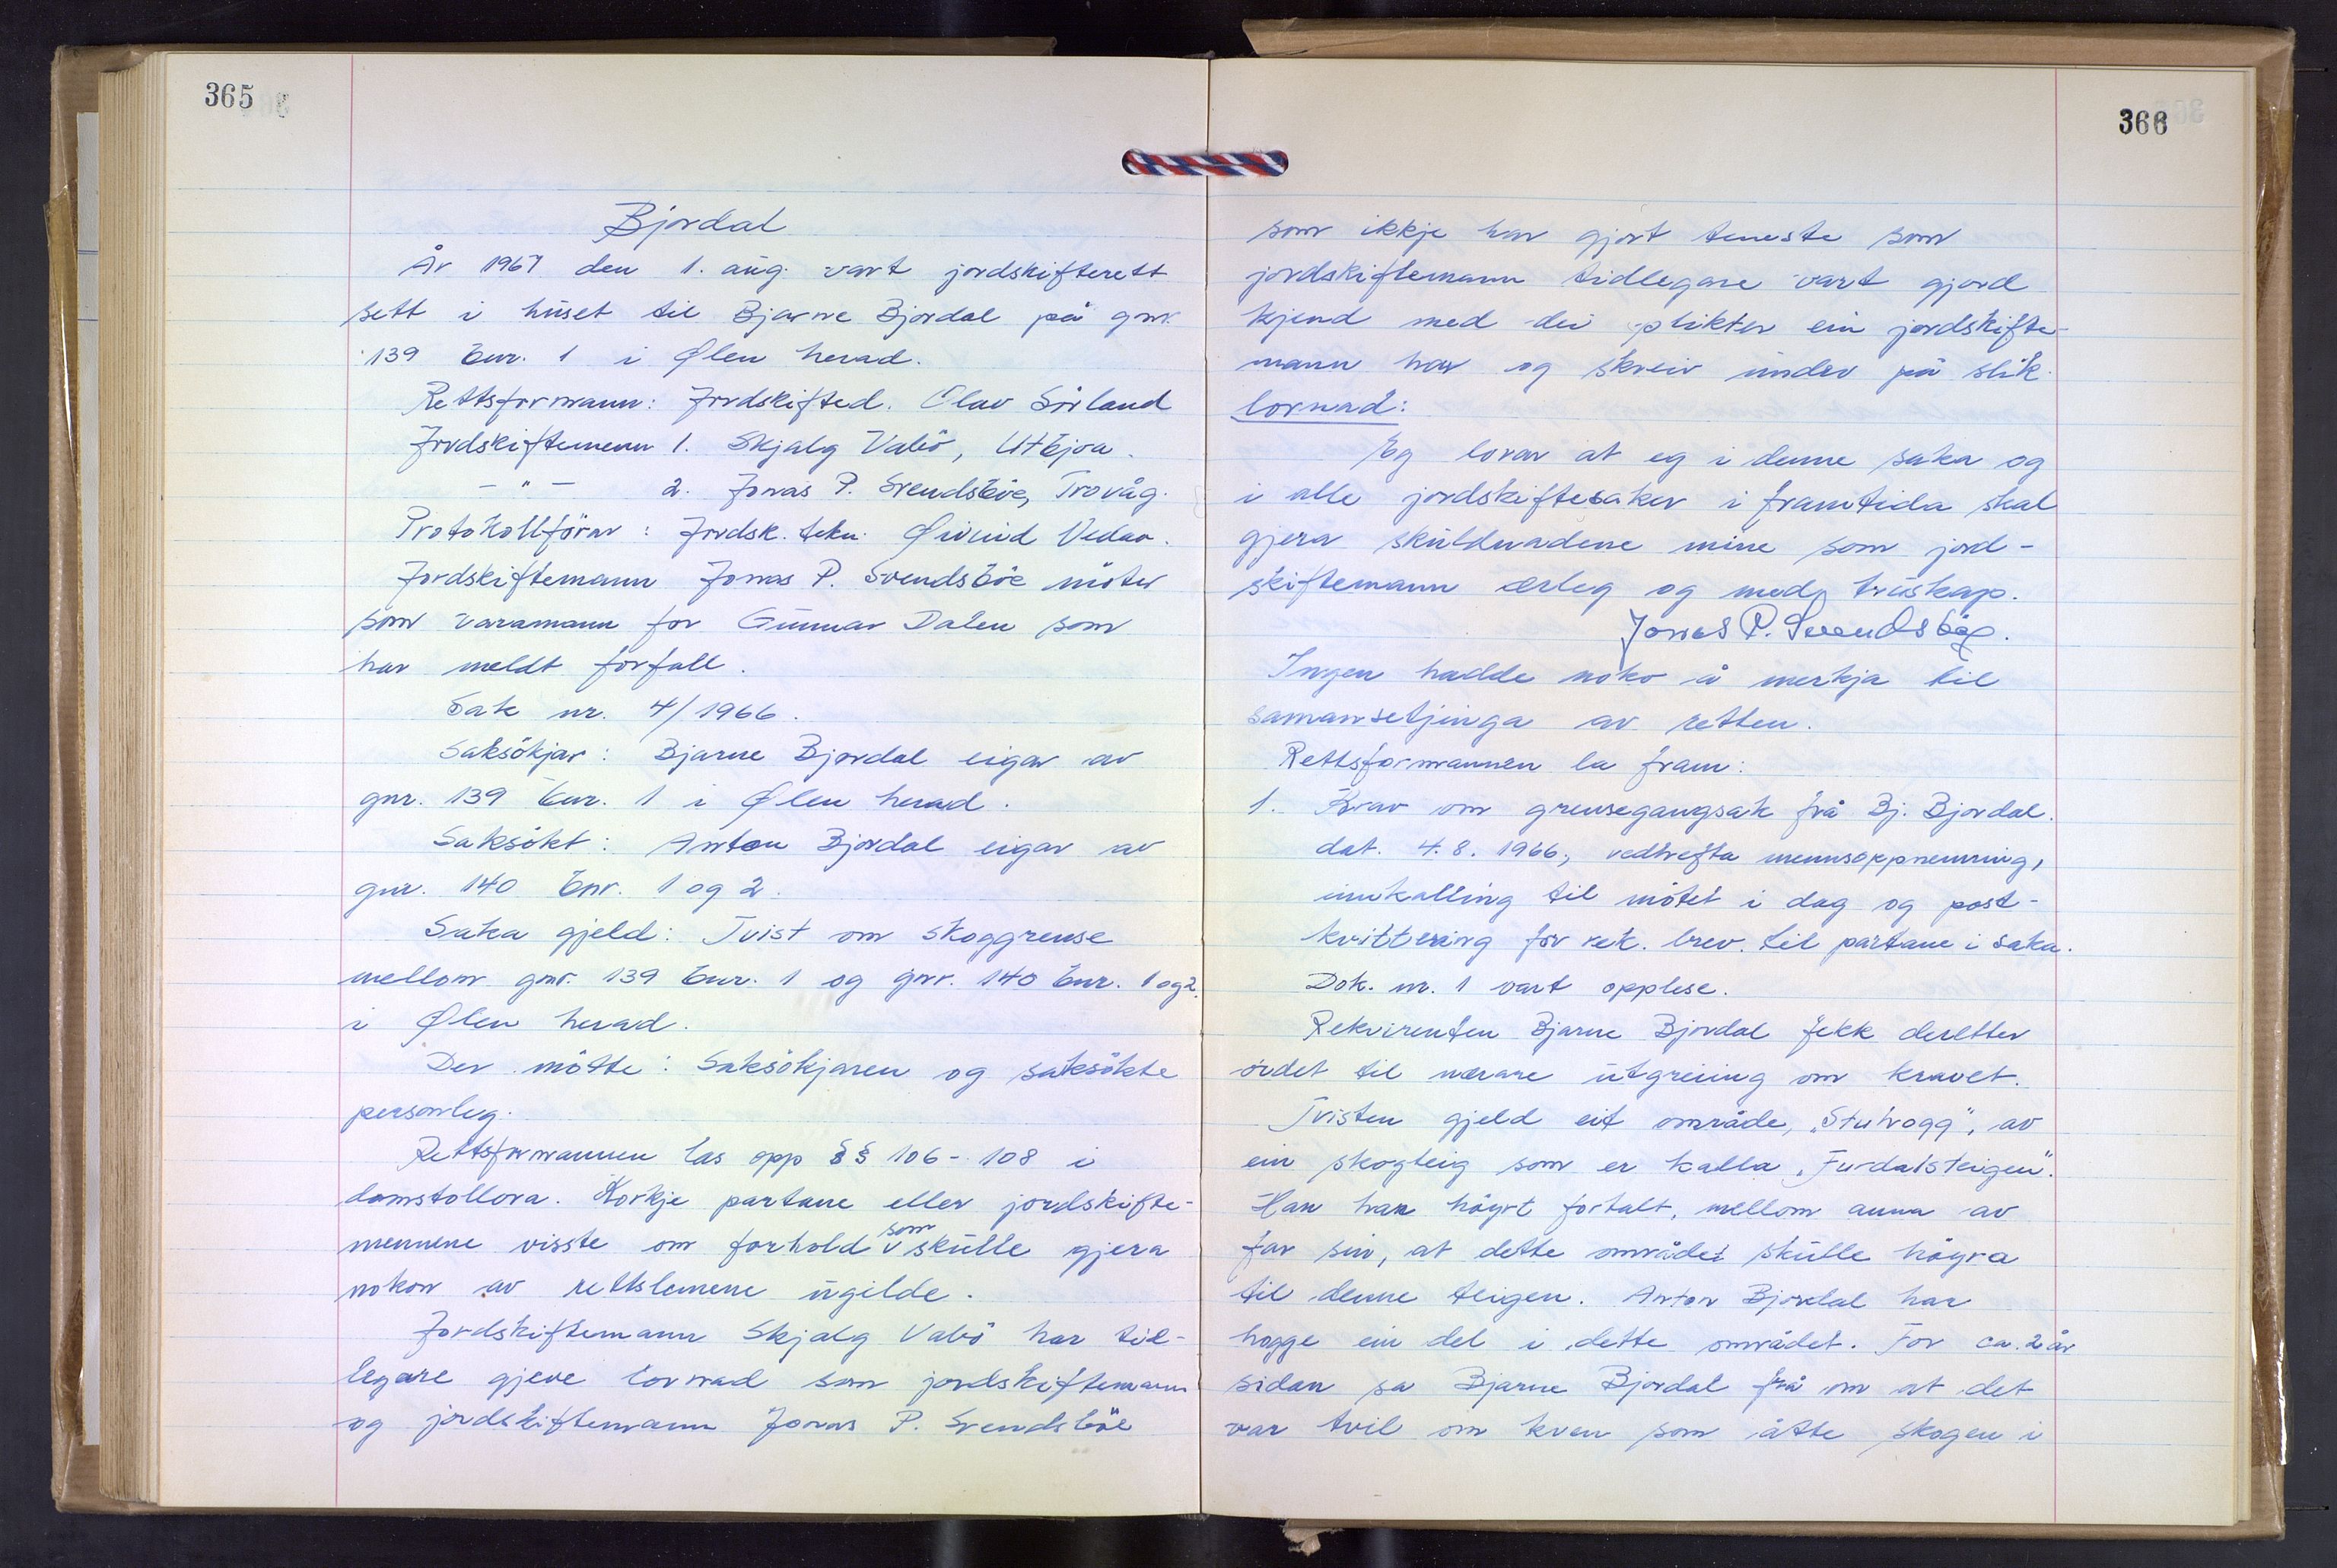 365
Bjordal
År 1967 den 1. aug. vart jordskifterett
sett i huset til Bjarne Bjordal på gnr.
139 bnr. 1 i Ølen herad.
Rettsformann: Jordskifted. Olav Sörland
Jordskiftemenn 1. Skjalg Vabö, Utbjoa.
- " - 2. Jonas P. Svendsböe, Trovåg.
Protokollförar: Jordsk. tekn. Øivind Vedøe.
Jordskiftemann Jonas P. Svendsböe möter
som varamann for Gunnar Dalen som
har meldt forfall.
Sak nr. 4/1966.
Saksökjar: Bjarne Bjordal eigar av
gnr. 139 bnr. 1 i Ølen herad.
Saksökt: Anton Bjordal eigar av
gnr. 140 bnr. 1 og 2.
Saka gjeld: Tvist om skoggrense
mellom gnr. 139 bnr. 1 og gnr. 140 bnr. 1 og 2.
i Ølen herad.
Der mötte: Saksökjaren og saksökte
personleg.
Rettsformannen las opp §§ 106-108 i
domstollova. Korkje partane eller jordskifte-
mennene visste om forhold som skulle gjera
nokon av rettslemene ugilde.
Jordskiftemann Skjalg Vabö har tid-
legare gjeve lovnad som jordskiftemann
og jordskiftemann Jonas P. Svendsböe
366
som ikkje har gjort teneste som
jordskiftemann tidlegare vart gjord
kjend med dei plikter ein jordskifte-
mann har og skreiv under på slik
lovnad:
Eg lovar at eg i denne saka og
i alle jordskiftesaker i framtida skal
gjera skuldnadene mine som jord-
skiftemann ærleg og med truskap.
Jonas P. Svendsbøe.
Ingen hadde noko å merkja til
samansetjinga av retten.
Rettsformannen la fram:
1. Krav om grensegangsak frå Bj. Bjordal.
dat. 4.8.1966, vedhefta mennsoppnemning,
innkalling til mötet i dag og post-
kvittering for rek. brev. til partane i saka.
Dok. nr. 1 vart opplese.
Rekvirenten Bjarne Bjordal fekk deretter
ordet til nærare utgreiing om kravet.
Tvisten gjeld eit område, "Stuhogg", av
ein skogteig som er kalla "Furdalsteigen".
Han har höyrt fortalt, mellom anna av
far sin, at dette området skulle höyra
til denne teigen. Anton Bjordal har
hogge ein del i dette området. For ca. 2 år
sidan sa Bjarne Bjordal frå om at det
var tvil om kven som åtte skogen i